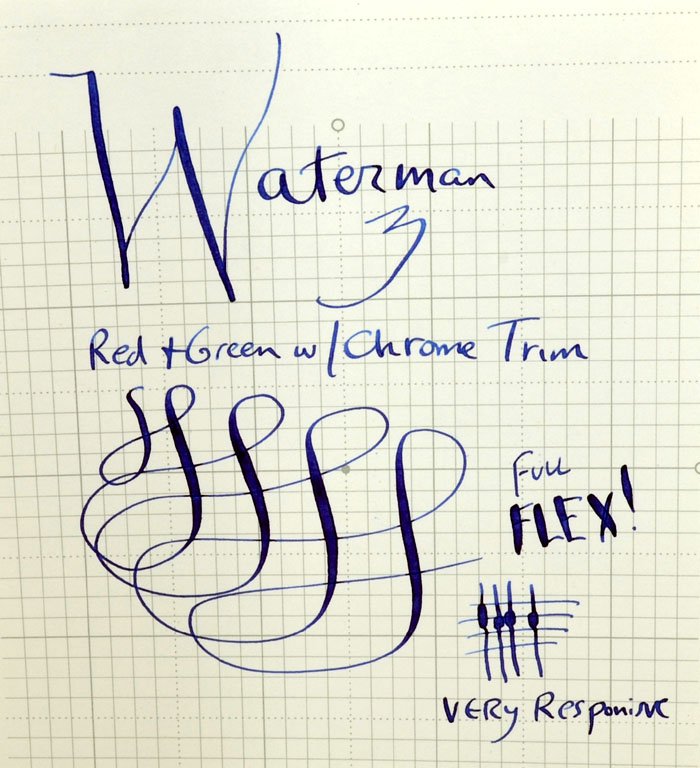 Waterman
3
Red + Green w/ Chrome Trim
Full
FLEX!
VERy Responive